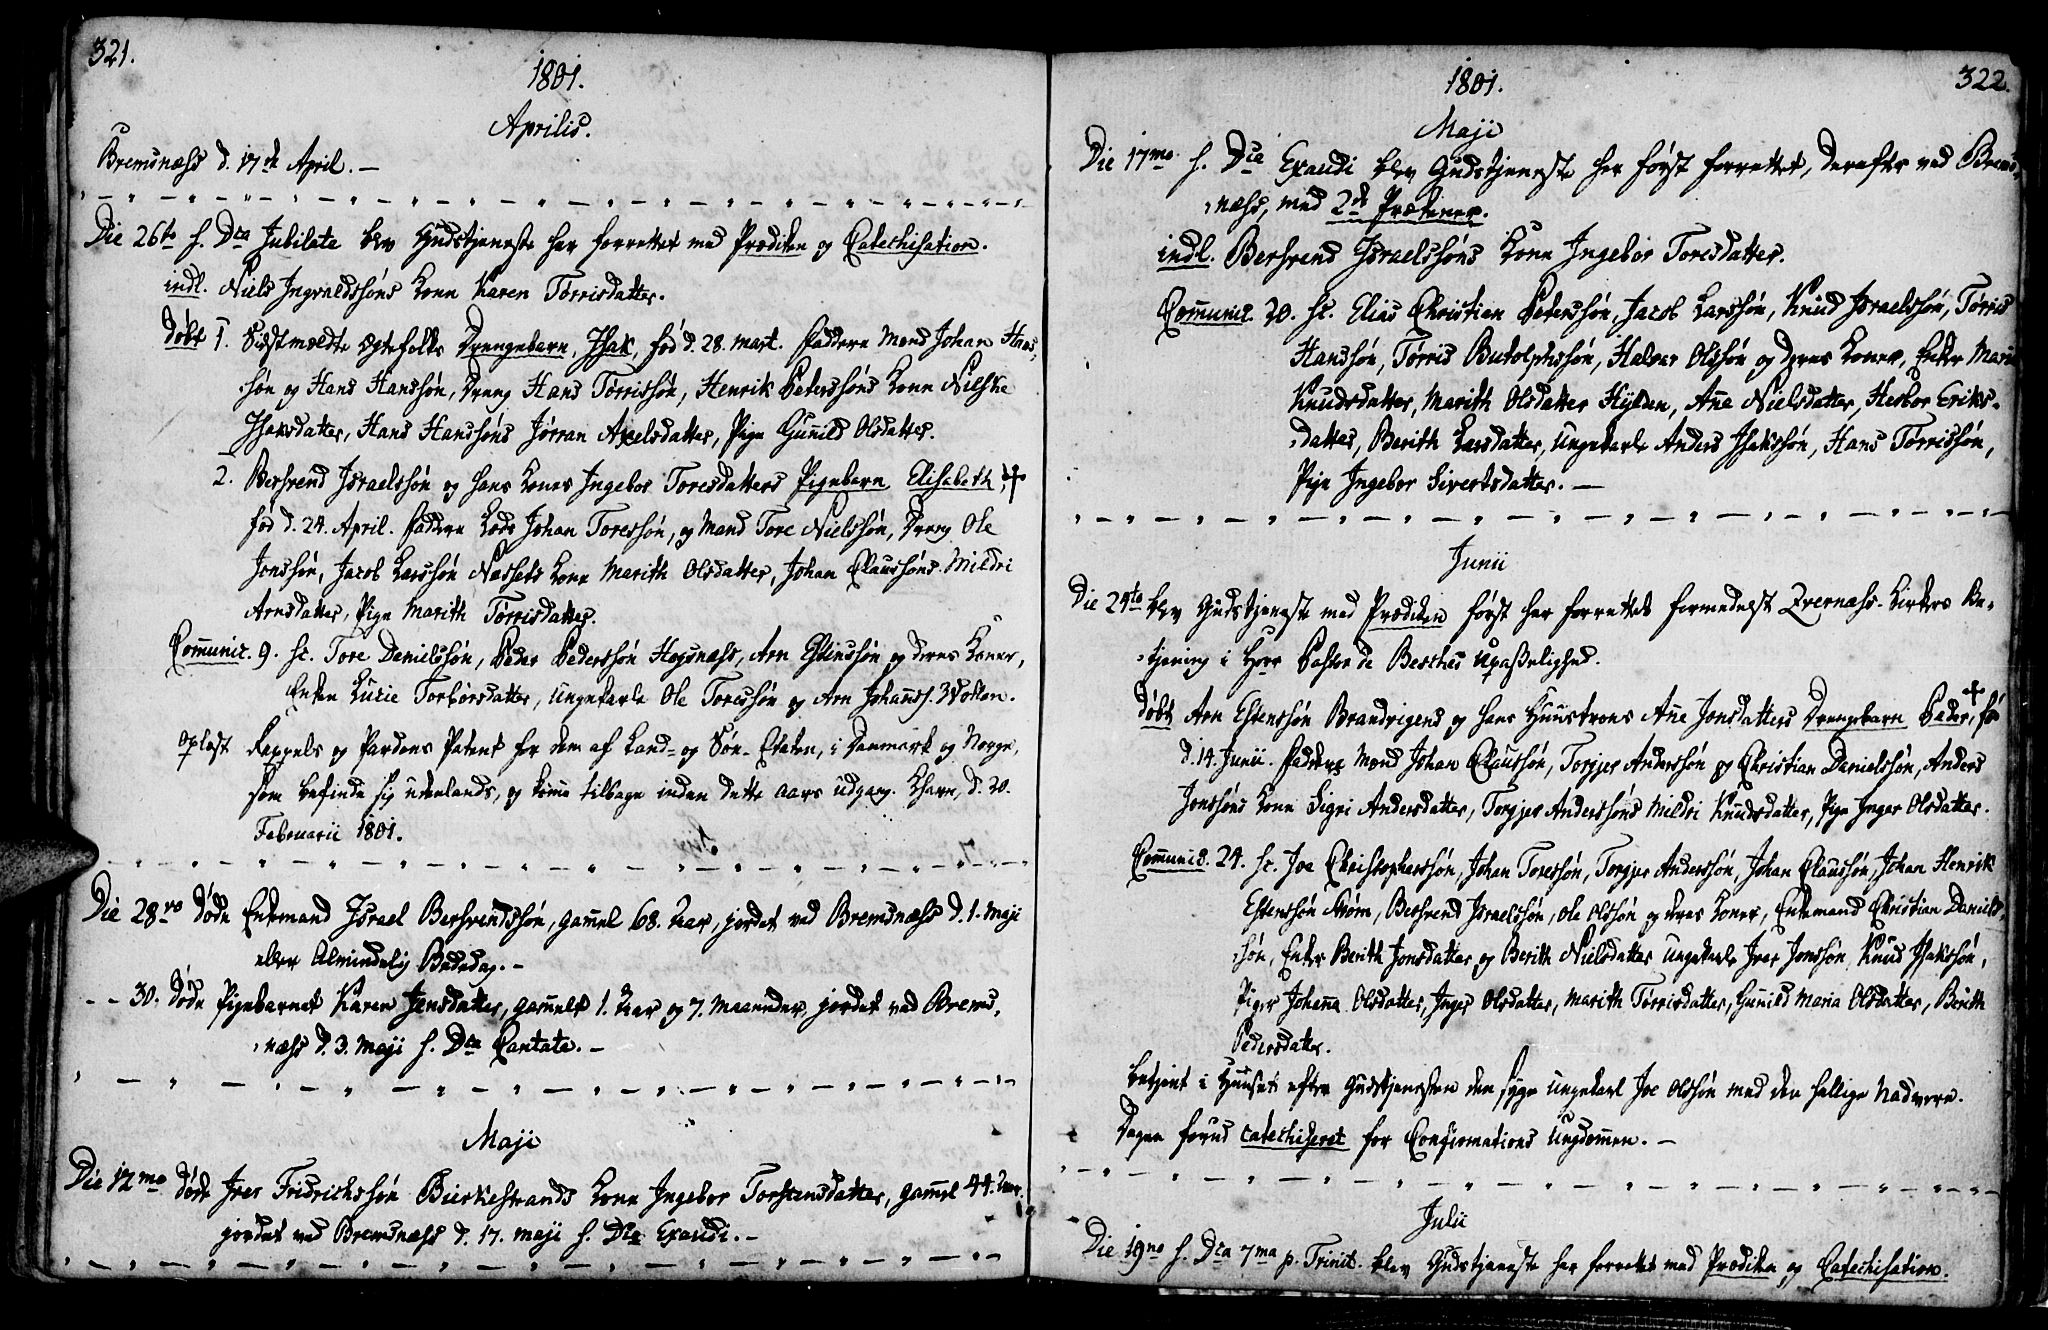 321.
1801.
Aprilis.
Bremsnæss d. 17de April. –
Die 26to s. Dca Jubilate blev Gudstjeneste her forrettet med Prædiken og Catechisation.
indl. Niels Ingvaldssøns Kone Karen Tørrisdatter.
døbt 1. Sidstmeldte Egtefolks Drengebarn, Isak, fød d. 28. Mart. Faddere Mænd Johan Hans-
søn og Hans Hanssøn, Dreng Hans Tørrissøn, Henrik Peterssøns Kone Nilske
Isaksdatter, Hans Hanssøns Jørran Axelsdatter, Pige Guñild Olsdatter.
2. Berhrend Israelssøn og hans Kones Ingebor Toresdatters Pigebarn Elisabeth, +
fød d. 24. April. Faddere Lods Johan Toressøn, og Mand Tore Nielssøn, Dreng Ole
Jonssøn, Jacob Larssøn Næssets Kone Marith Olsdatter, Johan Claussøns Mildri
Arnsdatter, Pige Marith Tørrisdatter.
Com̃unic. 9. sc. Tore Danielssøn, Peder Pederssøn Hogsnæss, Arn Estenssøn og deres Koner,
Enken Lucie Torbørsdatter, Ungekarle Ole Toressøn og Arn Johañs.
oplæst Rappels og Pardons Patent for dem af Land- og Søe-Etaten, i Danmark og Norge,
som befinde sig udenlands, og kom̃e tilbage inden dette Aars Udgang. Khavn, d. 20.
Februarii 1801.
Die 28vo døde Enkemand Israel Berhrendssøn, gam̃el 68. Aar, jordet ved Bremsnæss d. 1. Maji
eller Almindelig Bededag. –
– – 30. døde Pigebarnet Karen Jensdatter, gam̃elt 1. Aar og 7. Maaneder, jordet ved Brems-
næss d. 3. Maji s. Dca Cantate. –
Maji
Die 12mo døde Iver Fridrichssøn Bierkestrands Kone Ingebor Torstensdatter, gam̃el 44. Aar.
jordet ved Bremsnæss d. 17. Maji s. Dca Exaudi. –
322.
1801.
Maji
Die 17mo s. Dca Exaudi blev Gudstjeneste her først forrettet, derefter ved Brems-
næss, med 2de Prækener.
indl. Berhrend Israelssøns Kone Ingebor Toresdatter.
Com̃unic. 20. sc. Elias Christian Peterssøn, Jacob Larssøn, Knud Israelssøn, Tørris
Hanssøn, Tørris Butolphssøn, Halvor Olssøn og deres Koner, Enker Marit
Knudsdatter, Marith Olsdatter Hylen, Añe Nielsdatter, Herbor Eriks-
datter, Berith Larsdatter, Ungekarle Anders Isakssøn, Hans Tørrissøn,
Pige Ingebor Sivertsdatter. –
Junii
Die 24to blev Gudstjeneste med Prædiken først her forrettet formedelst Qvernæss-Kirkes Be-
tjening i Herr Pastor de Besches Upaßelighed.
døbt Arn Estenssøn Brandrigens og hans Huustroes Añe Jonsdatters Drengebarn Peder, + fød
d. 14 Junii. Faddere Mænd Johan Claussøn, Torgjer Anderssøn og Christian Danielssøn, Anders
Jonssøns Kone Sigri Andersdatter, Torgjer Anderssøns Mildri Knudsdatter, Pige Inger Olsdatter.
Com̃unic. 24. sc. Joe Christopherssøn, Johan Toressøn, Torgjer Anderssøn, Johan Claussøn, Johan Henrik
Estenssøn Strøm, Berhrend Israelssøn, Ole Olssøn og deres Koner, Enkemand Christian Daniels-
søn, Enker Berith Jonsdatter og Berith Nielsdatter Ungekarle Iver Jonssøn, Knud Isakssøn,
Piger Johaña Olsdatter, Inger Olsdatter, Marith Tørrisdatter, Guñild Maria Olsdatter, Berith
Pedersdatter.
betjent i Huuset efter Gudstjenesten den syge Ungekarl Joe Olssøn med den hellige Nadvere.
Dagen forud catechiseret for Confirmations Ungdom̃en. –
Julii
Die 19no s. Dca 7ma p. Trinit. blev Gudstjeneste her forrettet med Prædiken og Catechisation.